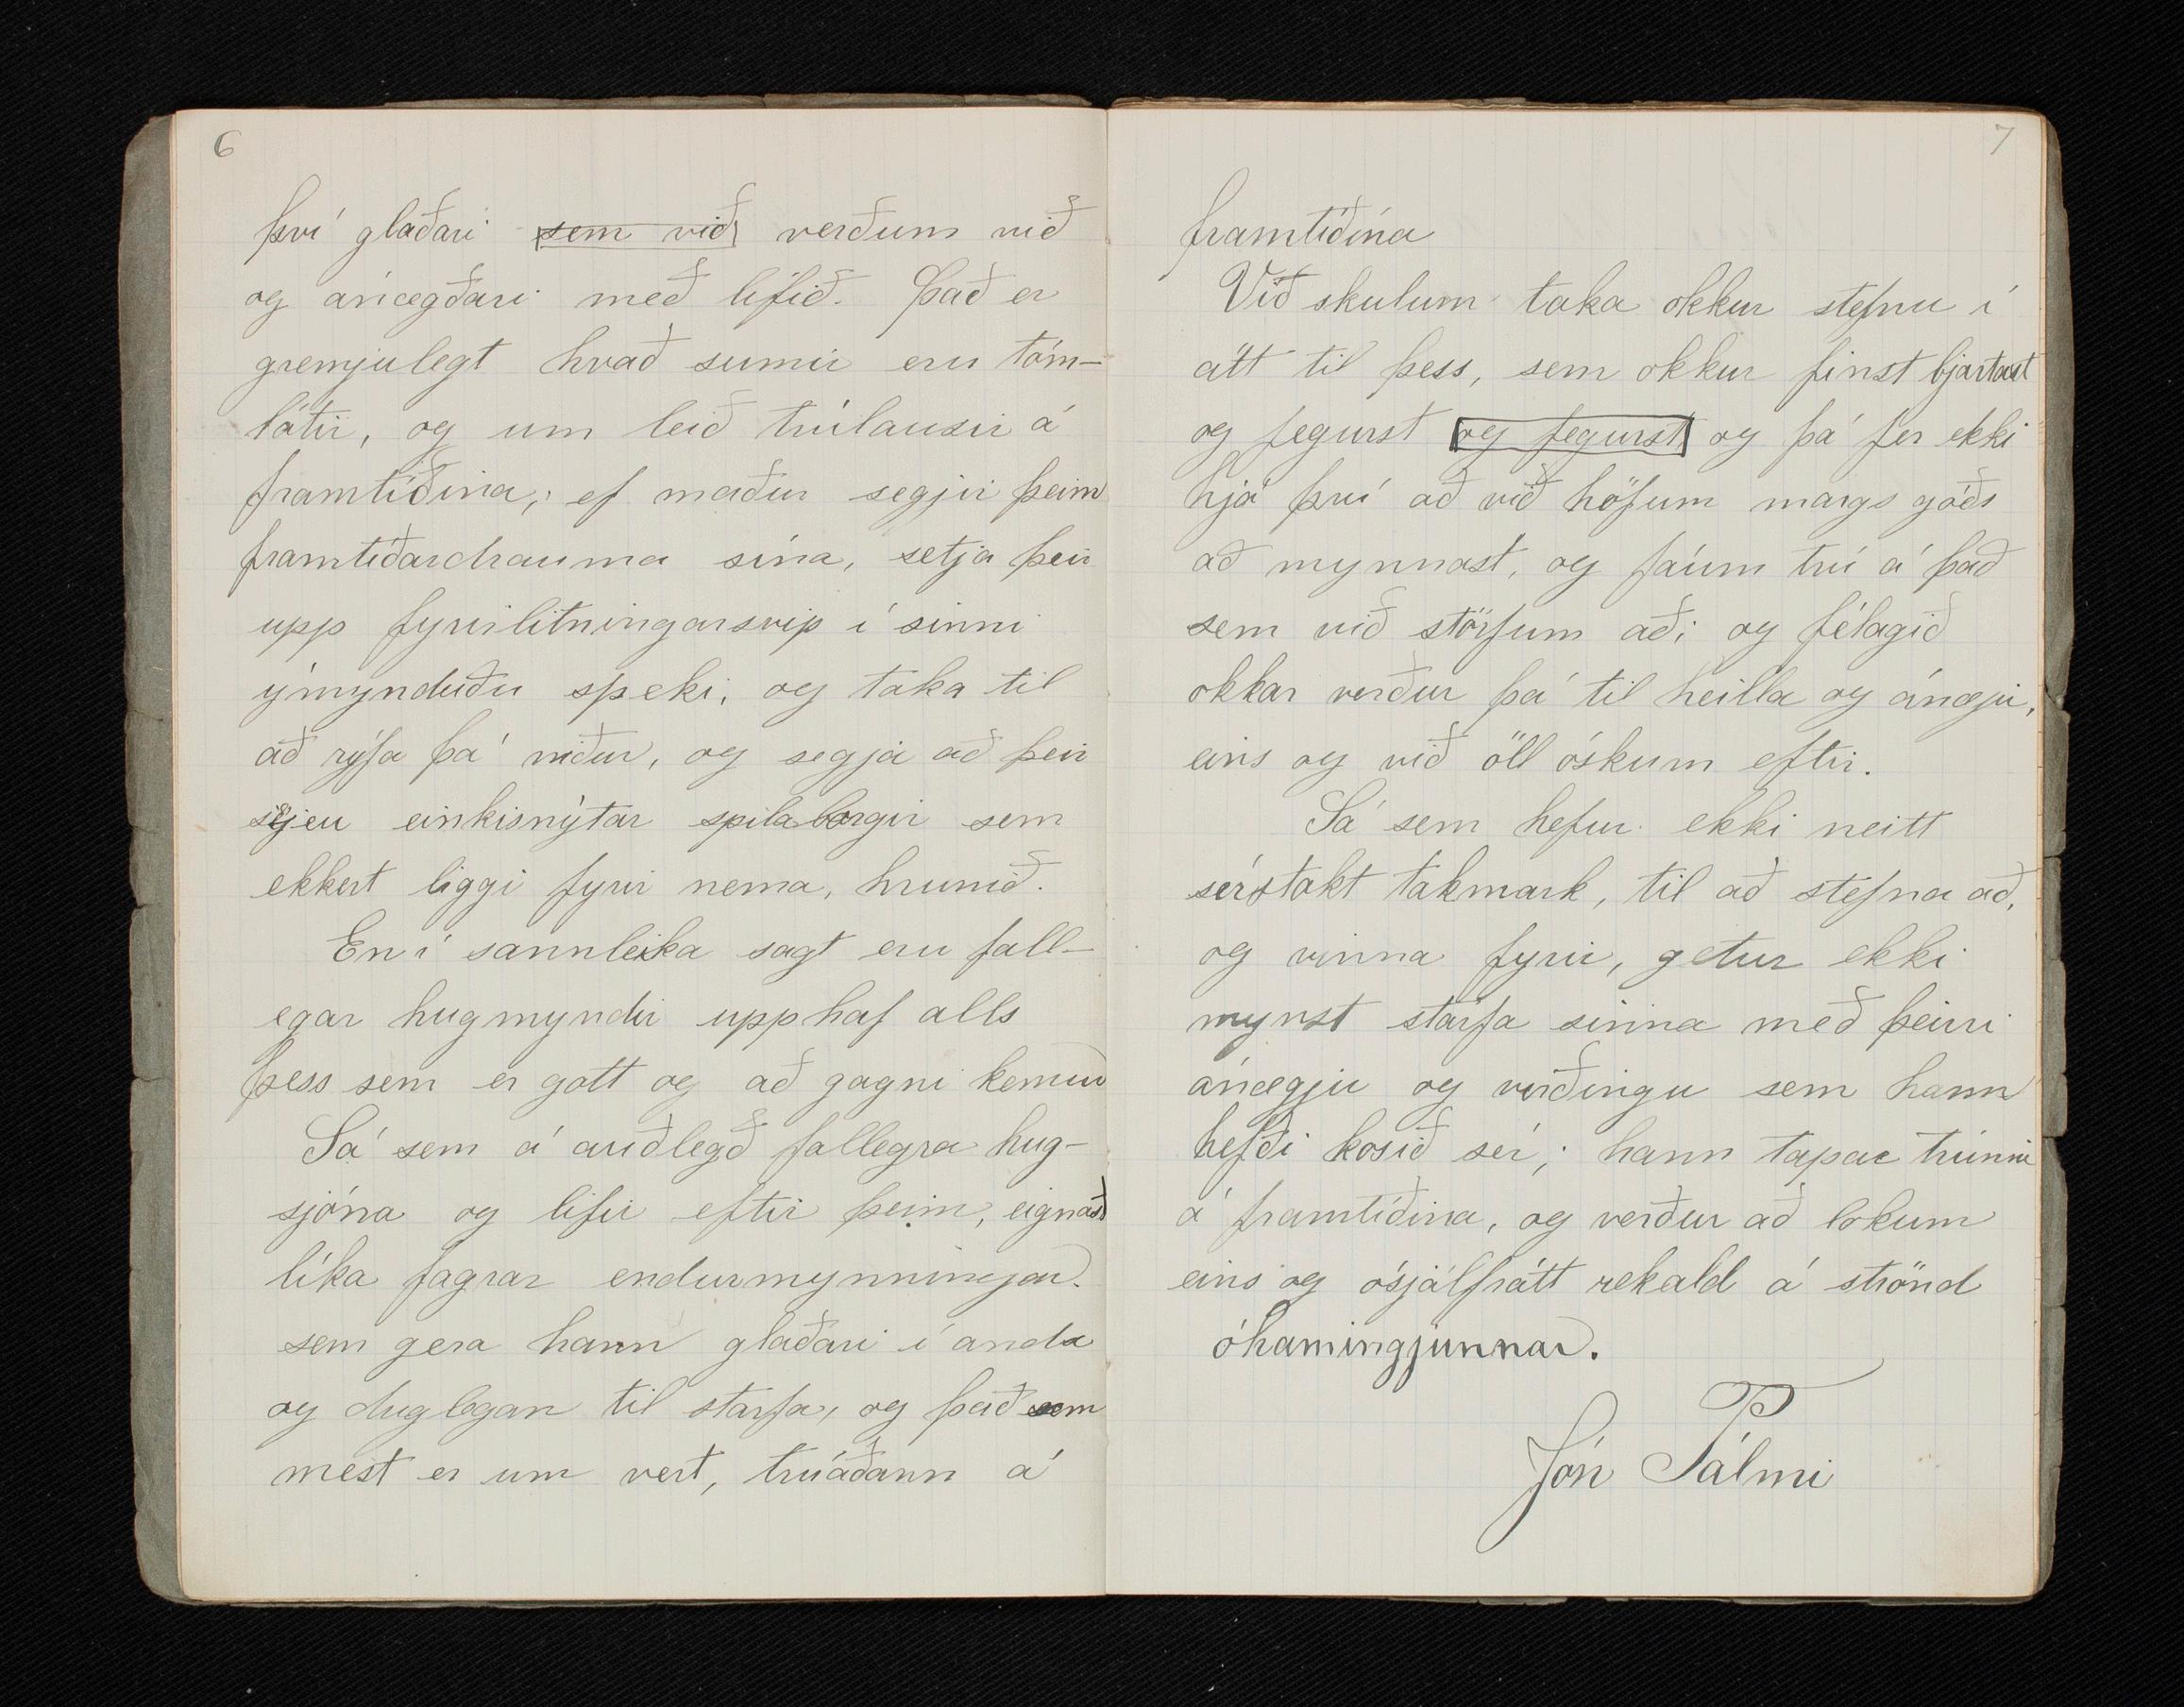 6
því glaðari sem við verðum við
og ánægðari með lífið. Það er
gremjulegt hvað sumir eru tóm-
látir, og um leið trúlausir á
framtíðina; ef maður segjir þeim
framtíðardrauma sína, setja þeir
upp fyrirlitningarsvip í sinni
ýmynduðu speki, og taka til
að rýfa þá niður, og segja að þeir
sjeu einkisnýtar spilaborgir sem
ekkert liggi fyrir nema, hrunið.
En í sannleika sagt eru fall-
egar hugmyndir upphaf alls
þess sem er gott og að gagni kemur
Sá sem á auðlegð fallegra hug-
sjóna og lifir eftir þeim, eignast
líka fagrar endurmynningar.
sem gera hann glaðari í anda
og duglegan til starfa, og það sem
mest er um vert, trúaðann á
7
framtíðina
Við skulum taka okkur stefnu í
átt til þess, sem okkur finst bjartast
og fegurst og fegurst og þá fer ekki
hjá því að við höfum margs góðs
að mynnast, og fáum trú á það
sem við störfum að; og félagið
okkar verður þá til heilla og ánægju,
eins og við öll óskum eftir.
Sá sem hefur ekki neitt
sérstakt takmark, til að stefna að,
og vinna fyrir, getur ekki
mynst starfa sinna með þeirri
ánægju og virðingu sem hann
hefði kosið sér; hann tapar trúnni
á framtíðina, og verður að lokum
eins og ósjálfrátt rekald á strönd
óhamingjunnar.
Jón Pálmi